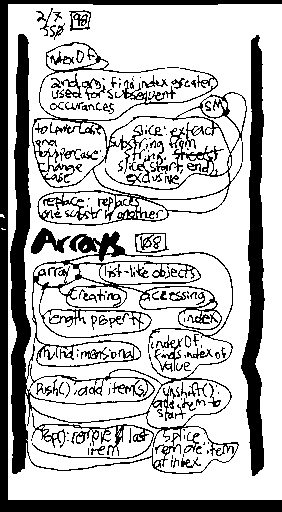 2/7 98
350
indexOf
2nd arg: find index greater
used for subsequent
occurances
SM
toLowerCase
and
toUpperCase:
change
case
slice: extract
substring from
string,
slice(start, end)
exclusive
replace: replaces
one substr w another
Arrays 108
array
list-like objects
creating
accessing
length property
index
multidimensional
indexOf:
finds index of
value
Push(): add item(s)
unshift():
add item to
start
Pop(): remove last
item
Splice
remove item
at index